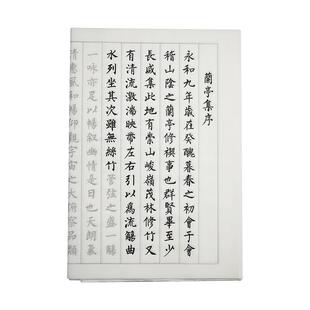 蘭亭集序
永和九年歲在癸醜暮春之初會于會
稽山陰之蘭亭修禊事也群賢畢至少
長咸集此地有崇山峻嶺茂林修竹又
有清流激湍映帶左右引以爲流觴曲
水列坐其次雖無絲竹管弦之盛一觴
一咏亦足以暢叙幽情是日也天朗氣
清惠風和暢仰觀宇宙之大俯察品類